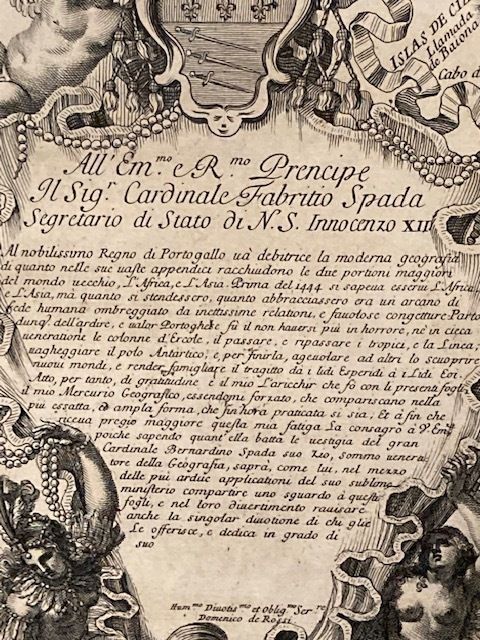 ISLAS DE
Llamada
de
Cabo d
All' Em.mo e R.mo Prencipe
Il Sig.r Cardinale Fabritio Spada
Segretario di Stato di N. S. Innocenzo XII
Al nobilissimo Regno di Portogallo uà debitrice la moderna geografia
di quanto nelle sue uaste appendici racchiudono le due portioni maggiori
del mondo uecchio, L'Africa, e L'Asia. Prima del 1444 si sapeua esserui L'Africa,
L'Asia, mà quanto si stendessero, quanto abbracciassero era un arcano di
fede humana ombreggiato da inettissime relationi, e fauolose congetture. Parto
dunq. dell'ardire, e ualor Portoghese fù il non hauersi più in horrore, nè in cieca
ueneratione le colonne d'Ercole, il passare, e ripassare i tropici, e la Linea,
uagheggiare il polo Antartico, e, per finirla, ageuolare ad altri lo scuoprire
nuoui mondi, e render famigliare il tragitto da i lidi Esperidi à i Lidi Eoi.
Atto, per tanto, di gratitudine è il mio L'aricchir che fò con li presenti fogli
il mio Mercurio Geografico, essendomi forzato, che compariscano nella
più essatta, & ampla forma, che fin hora praticata si sia. Et à fin che
riceua pregio maggiore questa mia fatiga La consagro à V. Em.
poiche sapendo quant' ella batta le uestigia del gran
Cardinale Bernardino Spada suo Zio, sommo
tore della Geografia, saprà, come lui, nel mezzo
delle più ardue applicationi del suo sublime
ministerio compartire uno sguardo à questi
fogli, e nel loro diuertimento rauisare
anche la singolar diuotione di chi glie
Le offerisce, e dedica in grado di
suo
Hum.mo Diuotis.mo et Oblig.mo Ser.re
Domenico de Rossi